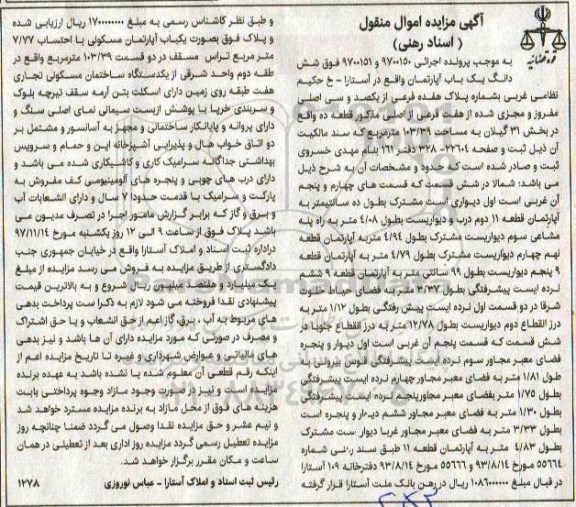 آگهی مزایده اموال منقول
( اسناد رهنی)
به موجب پرونده اجرائی ۹۷۰۰۱۵۰ و ۹۷۰۰۱۵۱ فوق شش
دانگ یک باب آپارتمان واقع در آستارا - خ حکیم
نظامی غربی بشماره پلاک هفده فرعی از یکصد و سی اصلی
مفروز و مجزی شده از هفت فرعی از اصلی مذکور قطعه ده واقع
در بخش ۳۱ گیلان به مساحت ۱۰۳/۳۹ مترمربع که سند مالکیت
آن ذیل ثبت و صفحه ۲۲۶۰۴- ۳۲۸ دفتر ۱۶۱ بنام مهدی خسروی
ثبت و صادر شده است که حدود و مشخصات آن به شرح ذیل
می باشد: شمالا در شش قسمت که قسمت های چهارم و پنجم
آن غربی است اول دیواری است مشترک بطول ده سانتیمتر به
آپارتمان قطعه ۱۱ دوم درب و دیواریست بطول ۴/۰۸ متر به راه پله
مشاعی سوم دیواریست مشترک بطول ۴/۹۴ متر به آپارتمان قطعه
نهم چهارم دیواریست مشترک بطول ۴/۷۹ متر به آپارتمان قطعه
۹ پنجم دیواریست بطول ۹۹ سانتی متر به آپارتمان قطعه ۹ ششم
نرده ایست پیشرفتگی بطول ۳/۳۷ متر به فضای حیاط جنوب
شرقا در دو قسمت اول نرده ایست پیش رفتگی بطول ۱/۱۲ متر به
درز انقطاع دوم دیواریست بطول ۱۲/۷۸ متر به درز انقطاع جنوبا در
شش قسمت که قسمت پنجم آن غربی است اول دیوار و پنجره
فضای معبر مجاور سوم نرده ایست پیشرفتگی قوس بیرونی به
طول ۱/۸۱ متر به فضای معبر مجاور چهارم نرده ایست پیشرفتگی
بطول ۱/۷۵ متر بفضای معبر مجاورپنجم نرده ایست پیشرفتگی
بطول ۱/۳۰ متر به فضای معبر مجاور ششم دیوار و پنجره است
بطول ۳/۳۳ متر به فضای معبر مجاور غربا دیوار است مشترک
بطول ۴/۸۳ متر به آپارتمان قطعه ۱۱ طبق سند رهنی شماره
۵۵۶۶۴ مورخ ۹۳/۸/۱۴ و ۵۵۶۶۶ مورخ ۹۳/۸/۱۴ دفترخانه ۱۰۹ آستارا
در قبال مبلغ ۱۰۸۶۰۰۰۰۰۰ ریال در رهن بانک ملت آستارا قرار گرفته
و طبق نظر کاشناس رسمی به مبلغ ۱۷۰۰۰۰۰۰۰۰ ریال ارزیابی شده
و پلاک فوق بصورت یکباب آپارتمان مسکونی با احتساب ۷/۷۷
متر مربع تراس مسقف در دو قسمت ۱۰۳/۳۹ مترمربع واقع در
طقه دوم واحد شرقی از یکدستگاه ساختمان مسکونی تجاری
هفت طبقه روی زمین دارای اسکلت بتن آرمه سقف تیرچه بلوک
و سربندی خرپا با پوشش ازیست سیمانی نمای اصلی سنگ و
دارای پروانه و پایانکار ساختمانی و مجهز به آسانسور و مشتمل بر
دو اتاق خواب هال و پذیرایی آشپزخانه اپن و حمام و سرویس
بهداشتی جداگانه سرامیک کاری و کاشیکاری شده می باشد و
دارای درب های چوبی و پنجره های آلومینیومی کف مفروش به
پارکت و سرامیک با قدمت حدودا ۷ سال و دارای انشعابات آب
و برق و گاز که برابر گزارش مامور اجرا در تصرف مدیون می
باشد پلاک فوق از ساعت ۹ الی ۱۲ روز یکشنبه مورخ ۹۷/۱۱/۱۴
دراداره ثبت اسناد و املاک آستارا واقع در خیابان جمهوری جنب
دادگستری از طریق مزایده به فروش می رسد مزایده از مبلغ
یک میلیارد و هفتصد میلیون ریال شروع و به بالاترین قیمت
پیشنهادی نقدا فروخته می شود لازم به ذکر است پرداخت بدهی
های مربوط به آب ، برق، گاز اعم از حق انشعاب و یا حق اشتراک
و مصرف در صورتی که مورد مزایده دارای آن ها باشد و نیز بدهی
های مالیاتی و عوارض شهرداری و غیره تا تاریخ مزایده اعم از
اینکه رقم قطعی آن معلوم شده یا نشده باشد به عهده برنده
مزایده است و نیز در صورت وجود مازاد وجوه پرداختی بابت
هزینه های فوق از محل مازاد به برنده مزایده مسترد خواهد شد
و نیم عشر و حق مزایده نقدا وصول می گردد ضمنا چنانچه روز
مزایده تعطیل رسمی گردد مزایده روز اداری بعد از تعطیلی در همان
ساعت و مکان مقرر برگزار خواهد شد.
رئیس ثبت اسناد و املاک آستارا - عباس نوروزی
۱۲۷۸